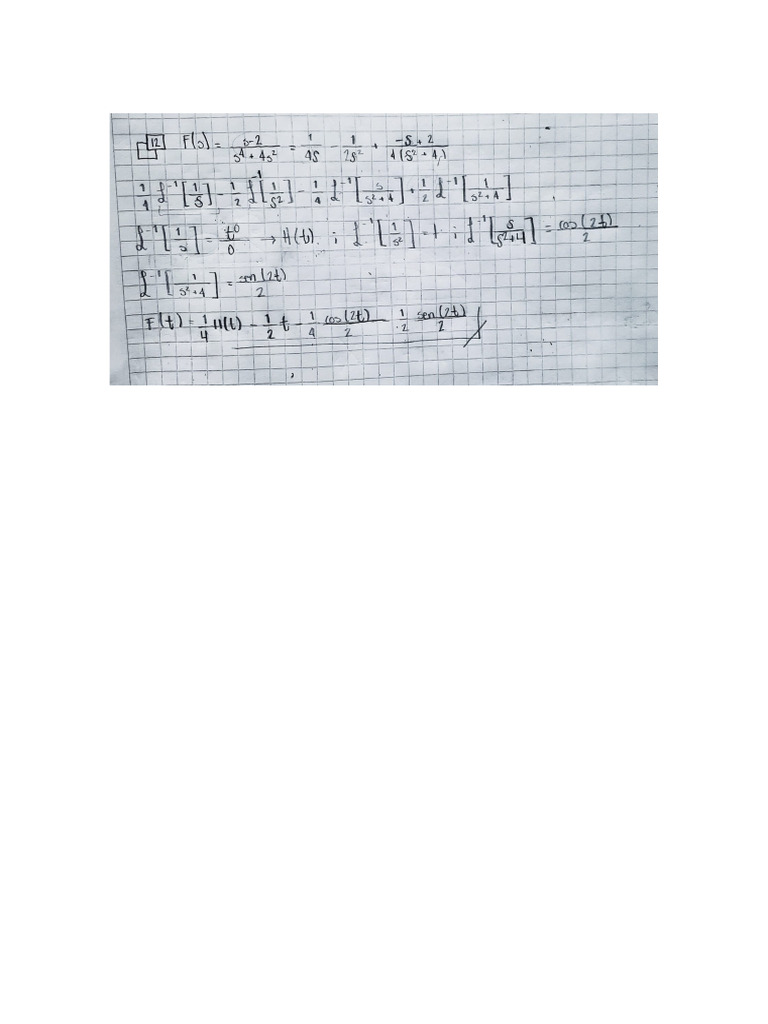 12 F(s) = s-2 / s⁴ + 4s² = 1 / 4s - 1 / 2s² + -s + 2 / 4(s² + 4)
1/4 ℒ⁻¹[1/s] - 1/2 ℒ⁻¹[1/s²] - 1/4 ℒ⁻¹[s/s²+4] + 1/2 ℒ⁻¹[1/s²+4]
ℒ⁻¹[1/s] = t⁰/0 → H(t) ; ℒ⁻¹[1/s²] = t ; ℒ⁻¹[s/s²+4] = cos(2t)/2
ℒ⁻¹[1/s²+4] = sen(2t)/2
F(t) = 1/4 H(t) - 1/2 t - 1/4 cos(2t)/2 1/2 sen(2t)/2